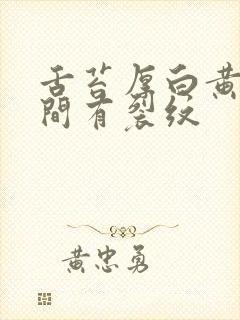 舌苔厚白黄
間有裂纹
黄忠勇